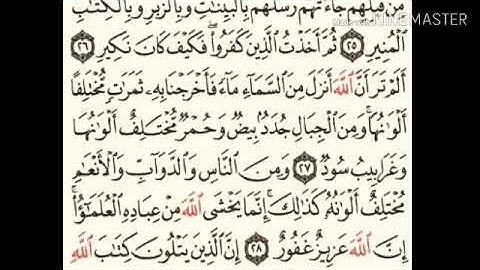 مِن قَبْلِهِمْ جَآءَتْهُمْ رُسُلُهُم بِٱلْبَيِّنَٰتِ وَبِٱلزُّبُرِ وَبِٱلْكِتَٰبِ
MADE WITH KINEMASTER
ٱلْمُنِيرِ ٢٥ ثُمَّ أَخَذْتُ ٱلَّذِينَ كَفَرُوا۟ ۖ فَكَيْفَ كَانَ نَكِيرِ ٢٦
أَلَمْ تَرَ أَنَّ ٱللَّهَ أَنزَلَ مِنَ ٱلسَّمَآءِ مَآءً فَأَخْرَجْنَا بِهِۦ ثَمَرَٰتٍ مُّخْتَلِفًا
أَلْوَٰنُهَا ۚ وَمِنَ ٱلْجِبَالِ جُدَدٌۢ بِيضٌ وَحُمْرٌ مُّخْتَلِفٌ أَلْوَٰنُهَا
وَغَرَابِيبُ سُودٌ ٢٧ وَمِنَ ٱلنَّاسِ وَٱلدَّوَآبِّ وَٱلْأَنْعَٰمِ
مُخْتَلِفٌ أَلْوَٰنُهُۥ كَذَٰلِكَ ۗ إِنَّمَا يَخْشَى ٱللَّهَ مِنْ عِبَادِهِ ٱلْعُلَمَٰٓؤُا۟ ۗ
إِنَّ ٱللَّهَ عَزِيزٌ غَفُورٌ ٢٨ إِنَّ ٱلَّذِينَ يَتْلُونَ كِتَٰبَ ٱللَّهِ